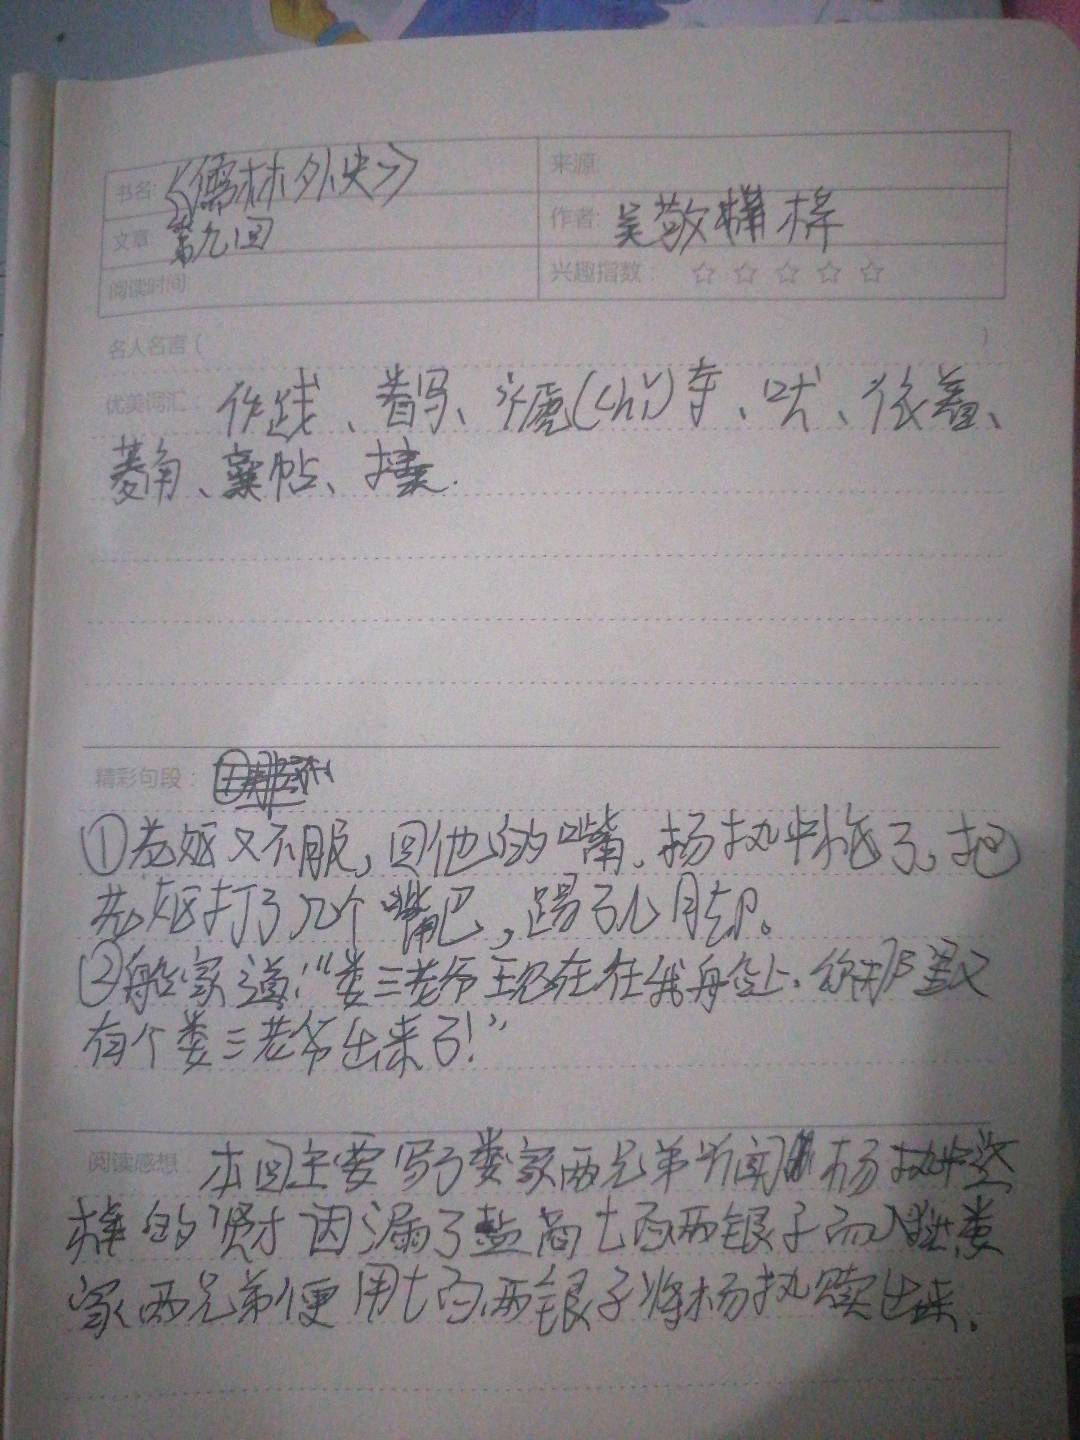 书名:《儒林外史》
来源:
文章 第九回
作者: 吴敬梓
阅读时间
兴趣指数: ☆ ☆ ☆ ☆ ☆
名人名言( )
优美词汇: 作践、着写、褫(chǐ)革、吠、依着、
菱角、禀帖、
精彩句段:
①老妪又不服,回他的嘴。杨执中恼了,把
老妪打了几个嘴巴,踢了几脚。
②船家道:“娄三老爷现在在我船上,你那里又
有个娄三老爷出来了!”
阅读感想: 本回主要写了娄家两兄弟听闻杨执中
的贤才因漏了盐商七百两银子而入狱娄
家两兄弟便用七百两银子将杨执赎出来。